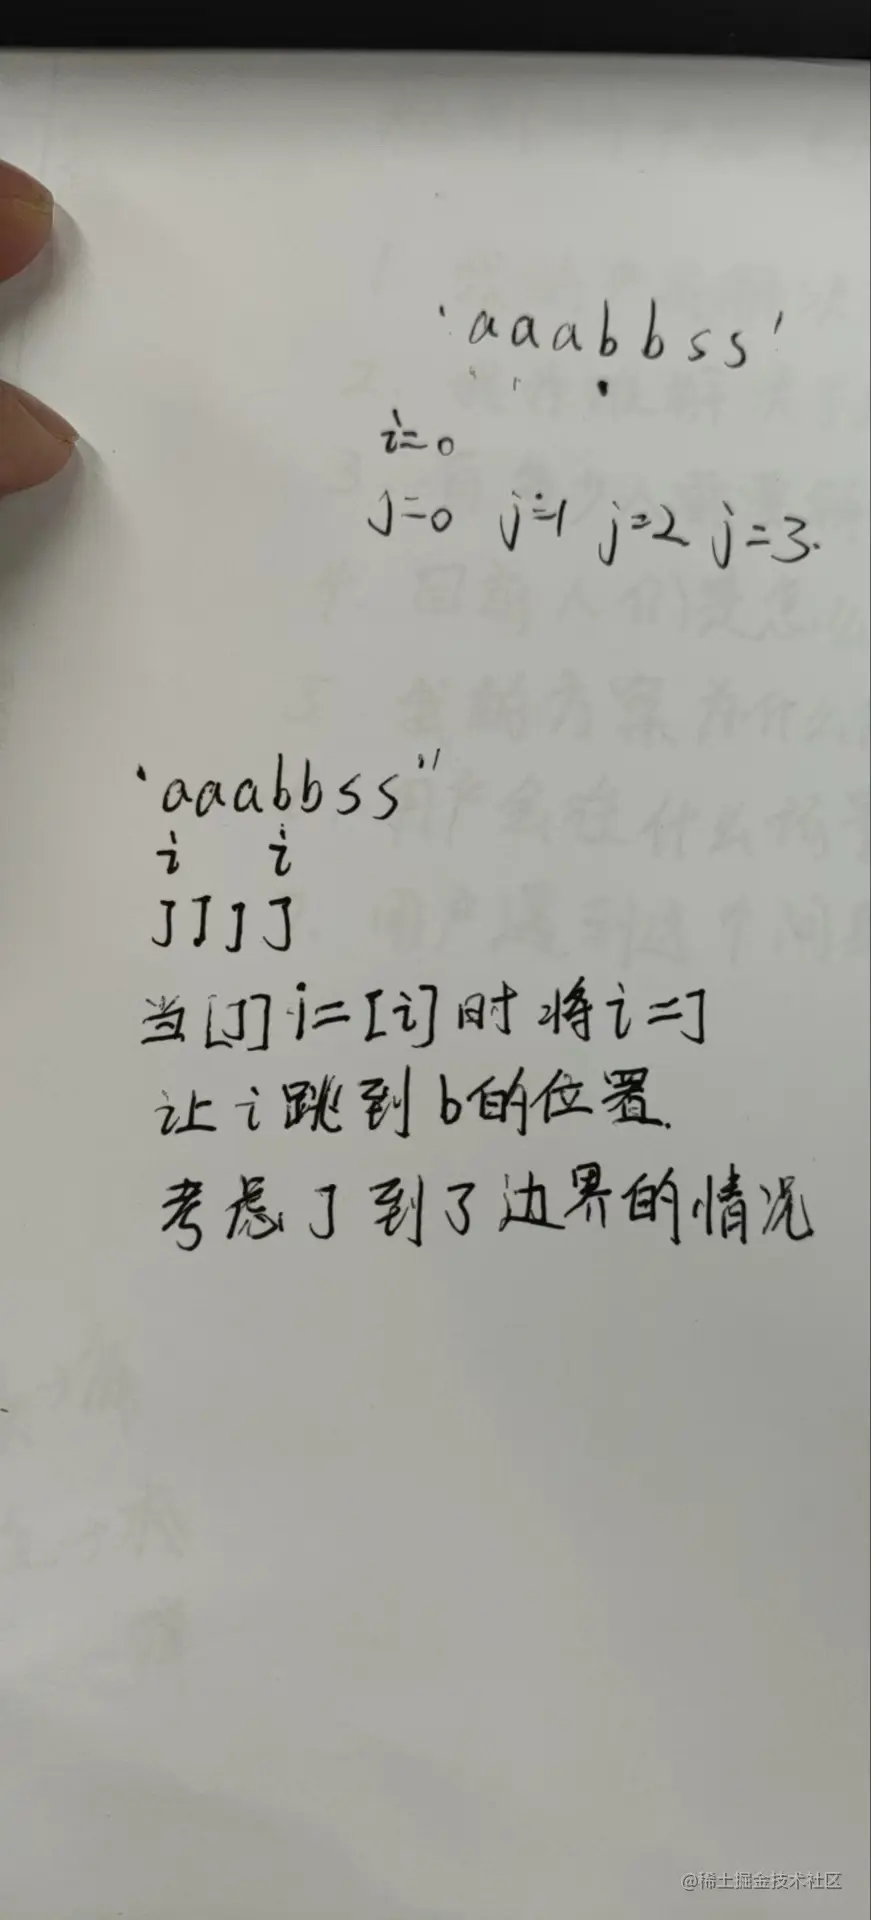 'aaabbss'
i=0
j=0 j=1 j=2 j=3.
'aaabbss"
i i
J J J J
当[J] != [i] 时 将 i=J
让 i 跳到 b 的位置.
考虑 J 到了边界的情况
@稀土掘金技术社区